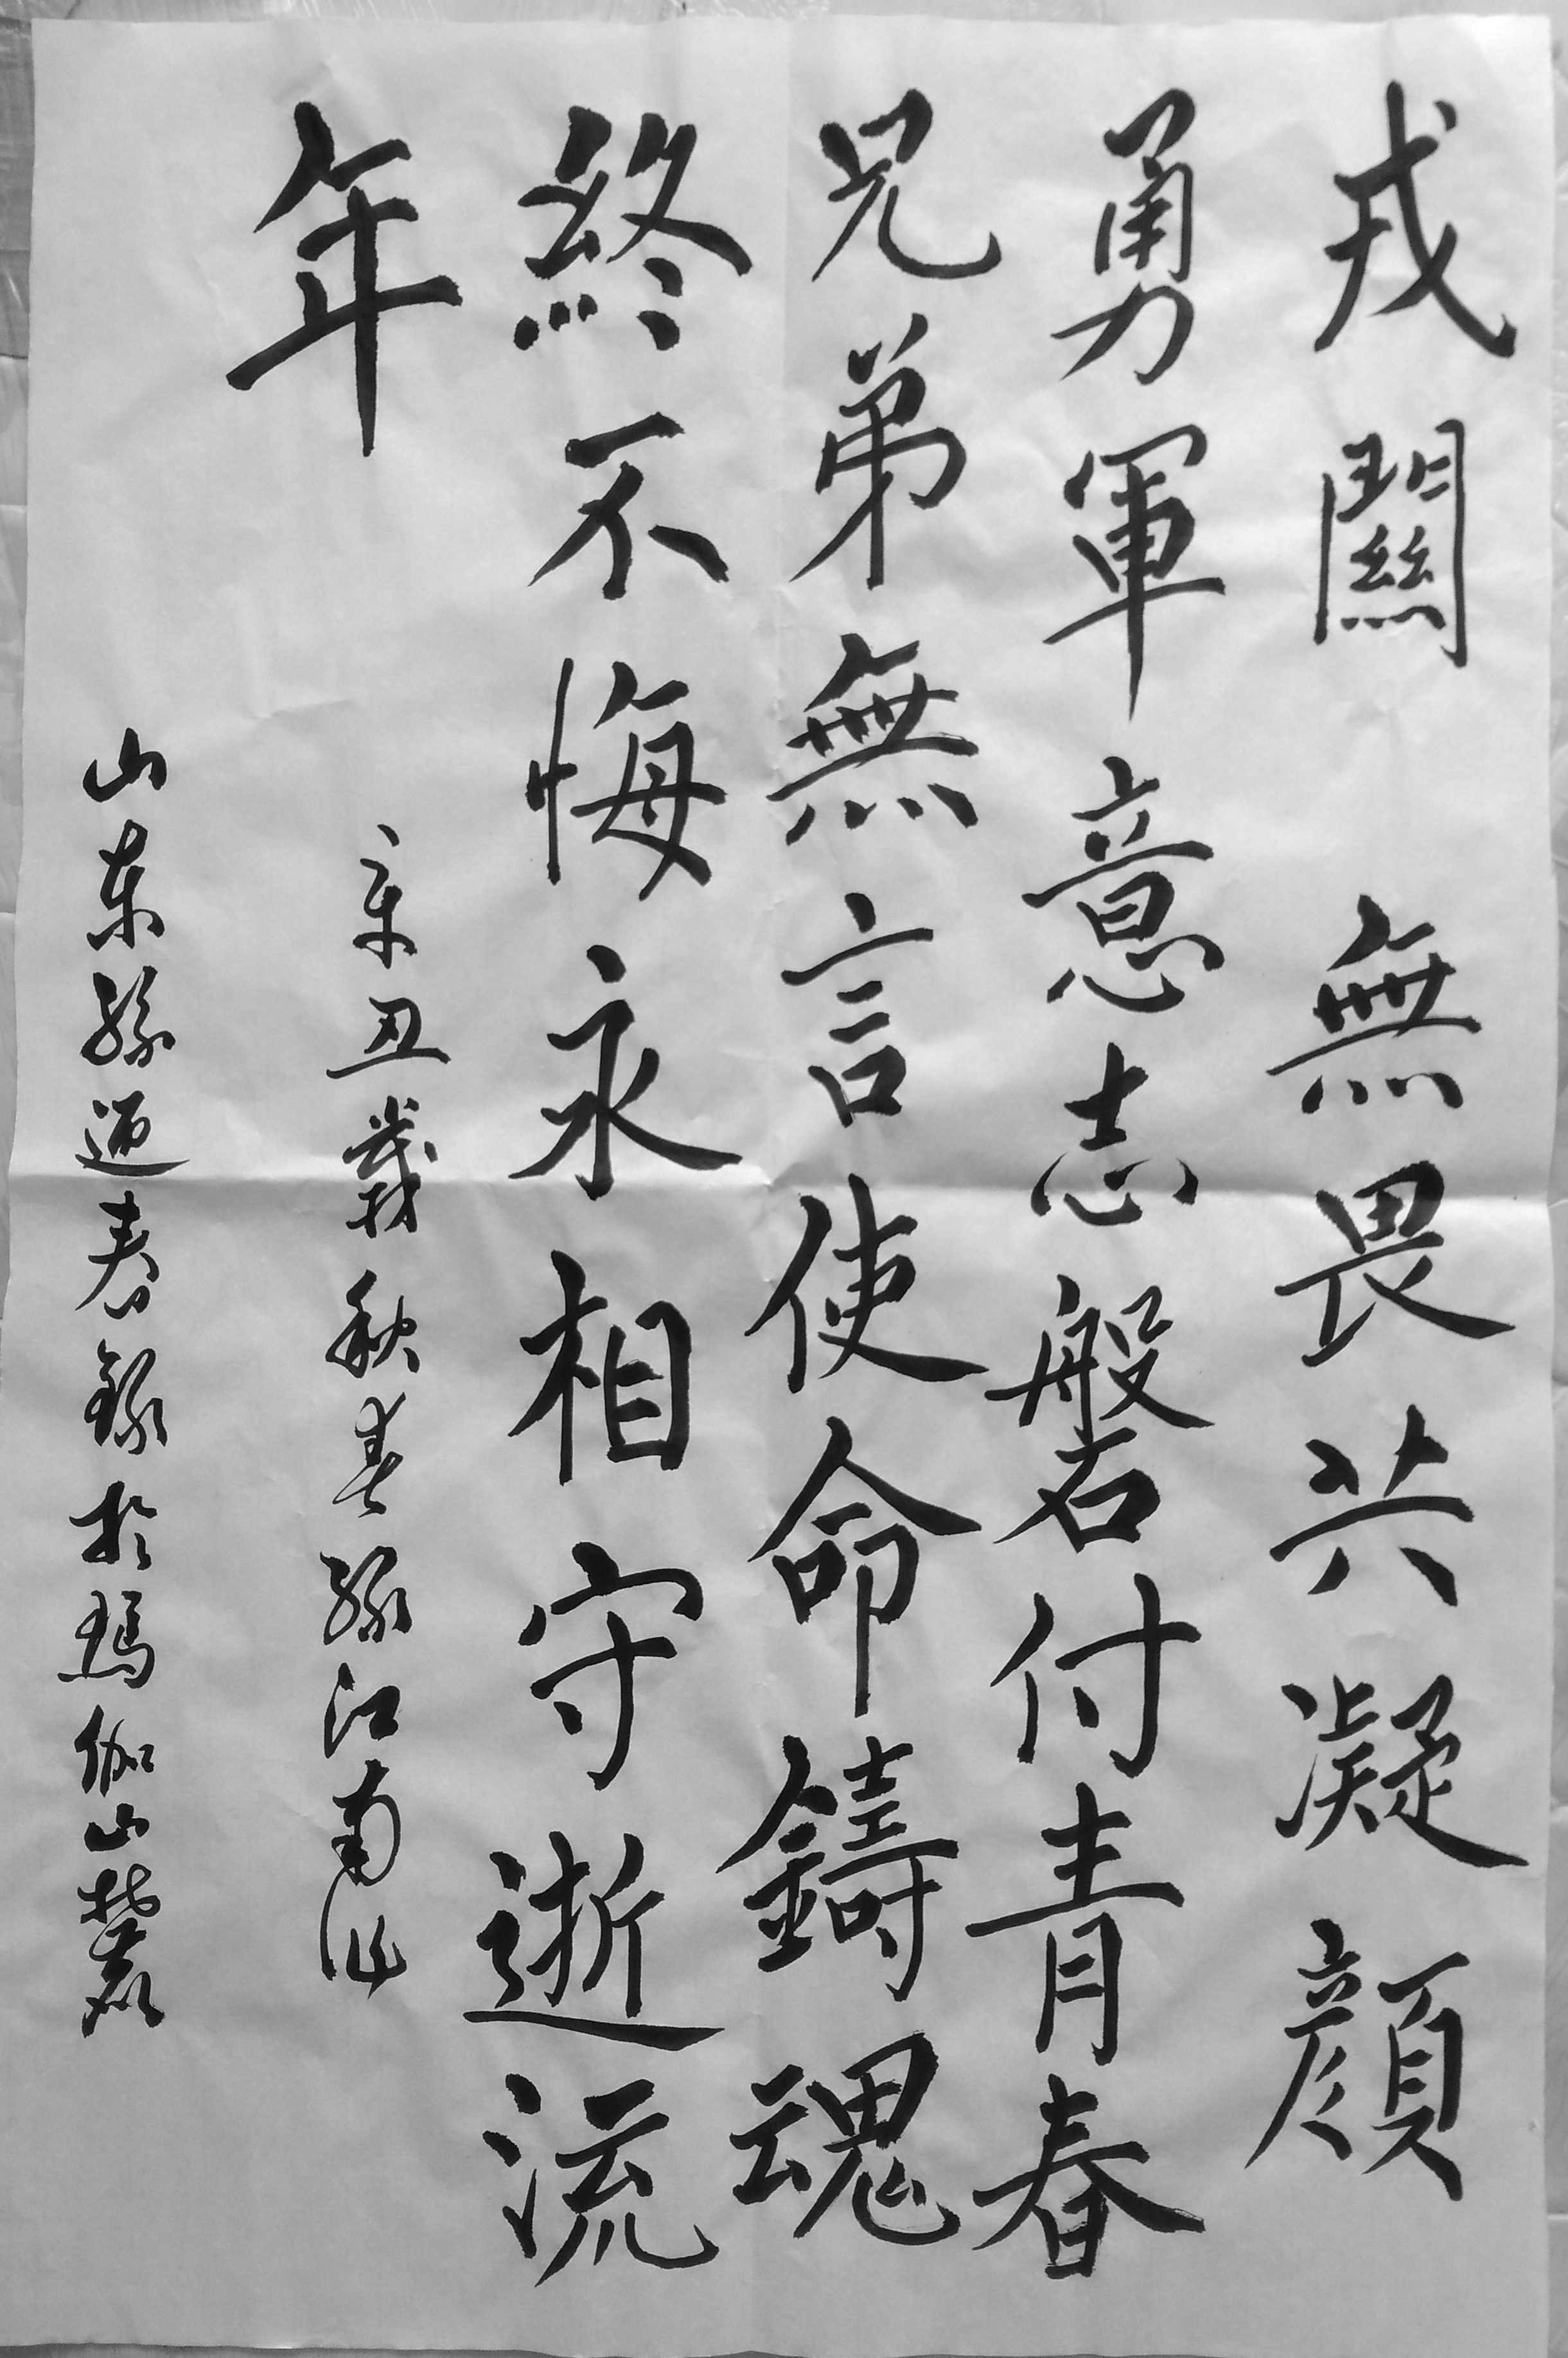 戎關 無畏共凝顏
勇軍意志磐付青春
兄弟無言使命鑄魂
終不悔永相守逝流
年
辛丑歲秋姜孫江南作
山東孫迎春錄於瑪伽山麓